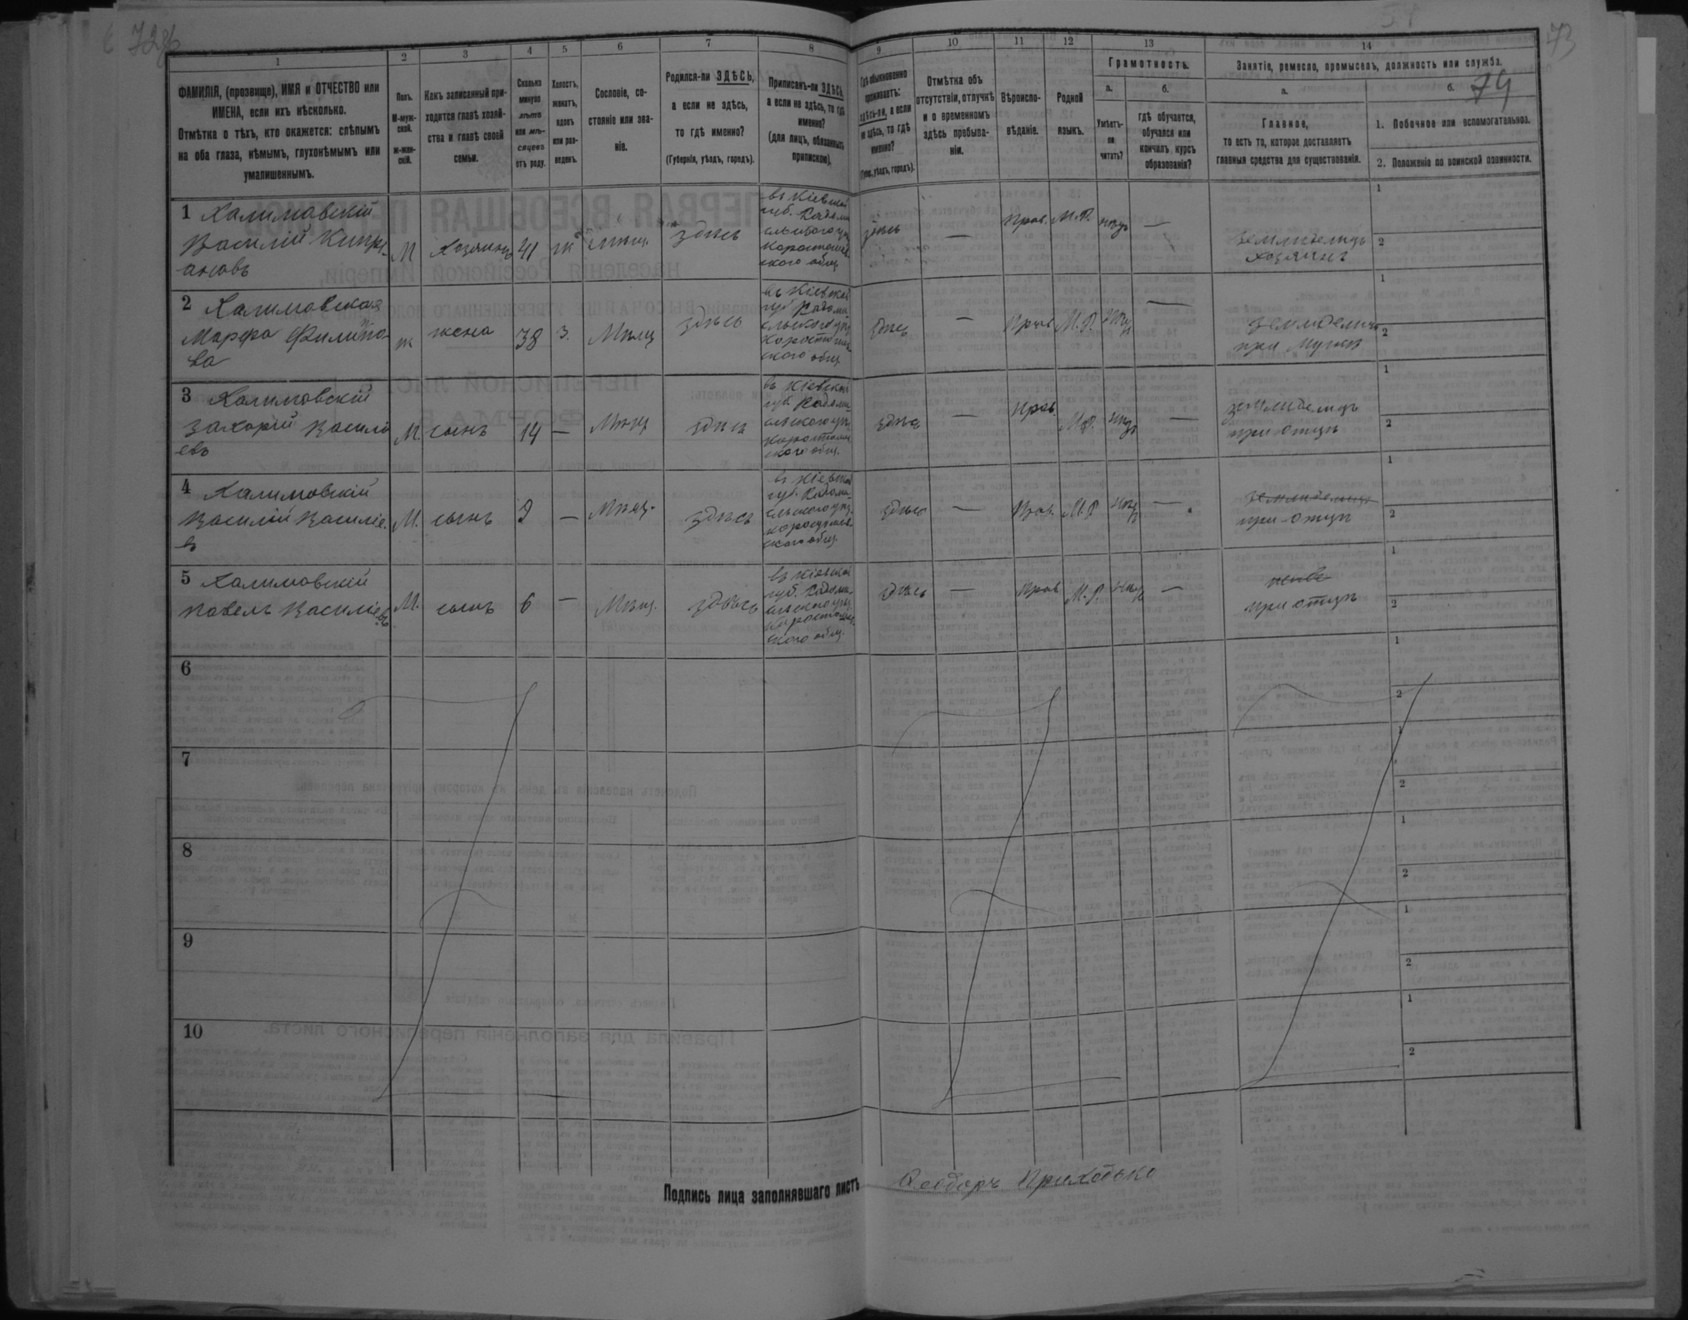 73
74
1 2 3 4 5 6 7 8 9 10 11 12 13 14
ФАМИЛІЯ, (прозвище), ИМЯ и ОТЧЕСТВО или
ИМЕНА, если ихъ нѣсколько.
Отмѣтка о тѣхъ, кто окажется: слѣпымъ
на оба глаза, нѣмымъ, глухонѣмымъ или
умалишеннымъ.
Полъ.
М-муж-
ской.
ж-жен-
скій.
Какъ записанный при-
ходится главѣ хозяй-
ства и главѣ своей
семьи.
Сколько
минуло
лѣтъ
или мѣ-
сяцевъ
отъ роду.
Холостъ,
женатъ,
вдовъ
или раз-
веденъ.
Сословіе, со-
стояніе или зва-
ніе.
Родился-ли ЗДѢСЬ,
а если не здѣсь,
то гдѣ именно?
(Губернія, уѣздъ, городъ).
Приписанъ-ли ЗДѢСЬ,
а если не здѣсь, то гдѣ
именно?
(для лицъ, обязанныхъ
припискою).
Гдѣ обыкновенно
проживаетъ:
здѣсь-ли, а если
не здѣсь, то гдѣ
именно?
(Губ., уѣздъ, городъ).
Отмѣтка объ
отсутствіи, отлучкѣ
и о временномъ
здѣсь пребыва-
ніи.
Вѣроиспо-
вѣданіе.
Родной
языкъ.
Грамотность.
а.
Умѣетъ-
ли
читать?
б.
гдѣ обучается,
обучался или
кончилъ курсъ
образованія?
Занятіе, ремесло, промыселъ, должность или служба.
а.
Главное,
то есть то, которое доставляетъ
главныя средства для существованія.
б.
1. Побочное или вспомогательное.
2. Положеніе по воинской повинности.
1 Халимовскій
Василій Кипрі-
ановъ
М Хозяинъ 41 ж
здѣсь
въ Кіевской
губ. Радомы-
сльскаго уѣз.
Коростышев-
ского общ.
здѣсь — Прав. М.Р. —
земледѣлецъ
хозяинъ
1
2
2 Халимовская
Марфа Филипо-
ва
ж жена 38 з. Мѣщ здѣсь
въ Кіевской
губ Радомы-
сльского уѣз
Коростышев-
ского общ
здѣсь — Прав М.Р. —
при мужѣ
1
2
3 Халимовскій
Захарій Василі
евъ
М сынъ 14 — Мѣщ здѣсь
въ Кіевской
губ. Радомы-
сльского уѣз
Коростышев
ского общ.
здѣсь — Прав М.Р. —
земледѣлецъ
при отцѣ
1
2
4 Халимовскій
Василій Василіе-
въ
М. сынъ 9 — Мѣщ. здѣсь
въ Кіевской
губ. Радомы-
сльского уѣз.
Коростышев-
ского общ.
здѣсь — Прав. М.Р. —
земледѣлецъ
при отцѣ
1
2
5 Халимовскій
Павелъ Василіевъ
М. сынъ 6 — Мѣщ. здѣсь
въ Кіевской
губ. Радомы-
сльского уѣз.
Коростышев
ского общ.
здѣсь — Прав М.Р. —
при отцѣ
1
2
6
1
2
7
1
2
8
1
2
9
1
2
10
1
2
Подпись лица заполнявшаго листъ Ѳеодоръ Приходько